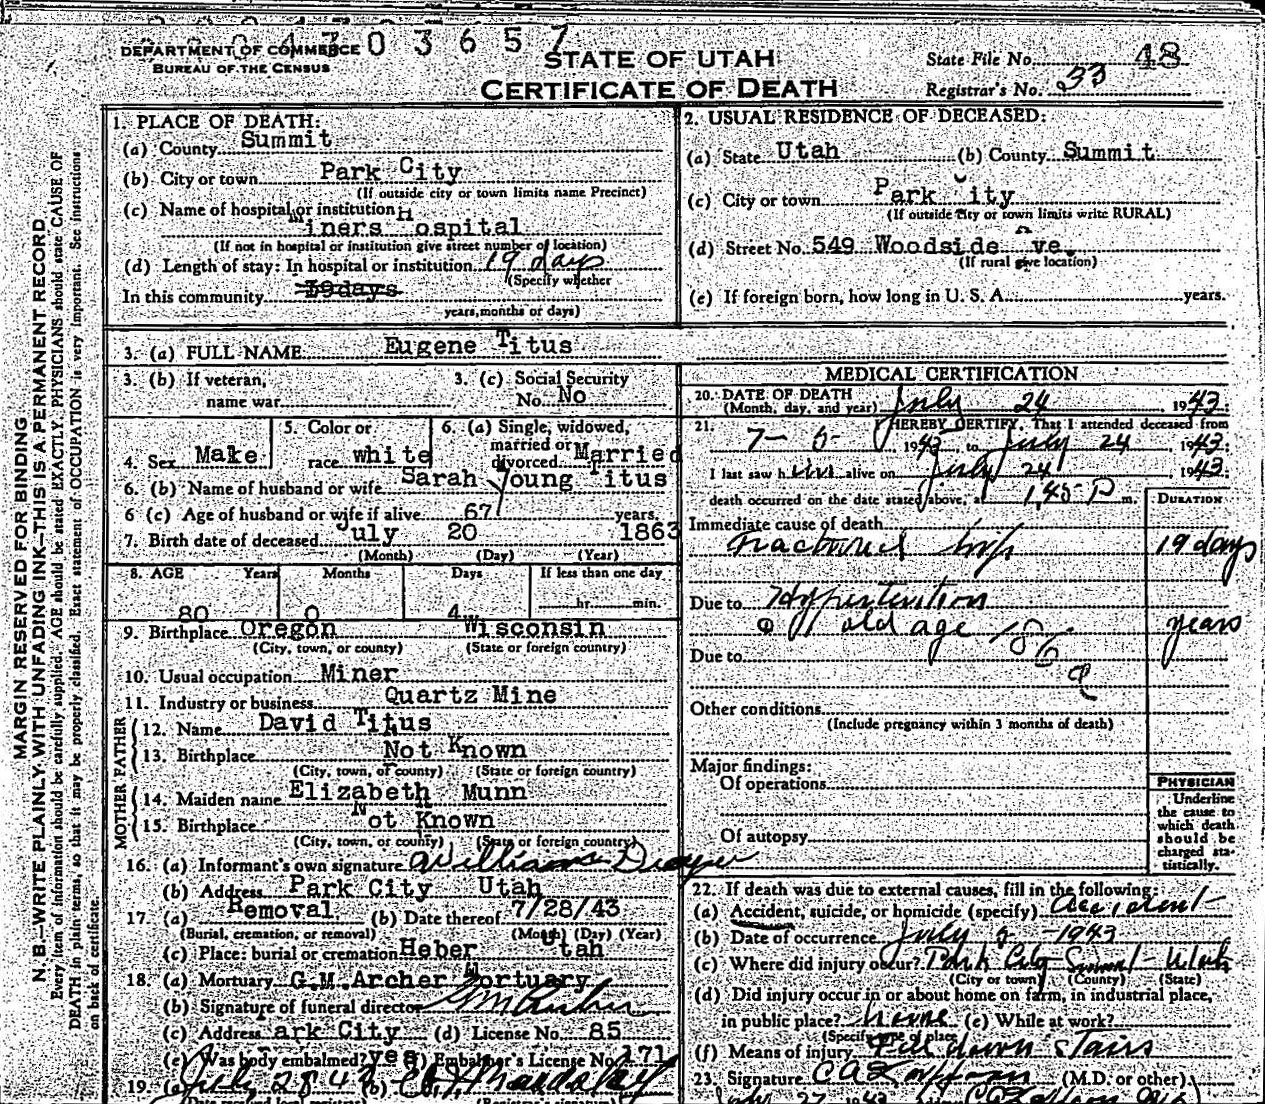 0 3 6 5 7
DEPARTMENT OF COMMERCE
BUREAU OF THE CENSUS
STATE OF UTAH
CERTIFICATE OF DEATH
State File No. 48
Registrar's No. 33
MARGIN RESERVED FOR BINDING
N. B.—WRITE PLAINLY, WITH UNFADING INK—THIS IS A PERMANENT RECORD
Every item of information should be carefully supplied. AGE should be stated EXACTLY. PHYSICIANS should state CAUSE OF
DEATH in plain terms, so that it may be properly classified. Exact statement of OCCUPATION is very important. See instructions
on back of certificate.
1. PLACE OF DEATH:
(a) County Summit
(b) City or town Park City
(If outside city or town limits name Precinct)
(c) Name of hospital or institution
Miners Hospital
(If not in hospital or institution give street number of location)
(d) Length of stay: In hospital or institution 19 days
(Specify whether
In this community 19days
years, months or days)
2. USUAL RESIDENCE OF DECEASED:
(a) State Utah (b) County Summit
(c) City or town Park City
(If outside city or town limits write RURAL)
(d) Street No. 549 Woodside Ave.
(If rural give location)
(e) If foreign born, how long in U. S. A. years.
3. (a) FULL NAME Eugene Titus
3. (b) If veteran, 3. (c) Social Security
name war No. No
4. Sex Male 5. Color or race white 6. (a) Single, widowed, married or divorced Married
6. (b) Name of husband or wife Sarah Young Titus
6 (c) Age of husband or wife if alive 67 years.
7. Birth date of deceased July 20 1863
(Month) (Day) (Year)
8. AGE Years Months Days If less than one day
80 0 4 hr. min.
9. Birthplace Oregon Wisconsin
(City, town, or county) (State or foreign country)
10. Usual occupation Miner
11. Industry or business Quartz Mine
FATHER
12. Name David Titus
13. Birthplace Not Known
(City, town, or county) (State or foreign country)
MOTHER
14. Maiden name Elizabeth Munn
15. Birthplace Not Known
(City, town, or county) (State or foreign country)
16. (a) Informant's own signature
(b) Address Park City Utah
17 (a) Removal (b) Date thereof 7/28/43
(Burial, cremation, or removal) (Month) (Day) (Year)
(c) Place: burial or cremation Heber Utah
18. (a) Mortuary G.M.Archer Mortuary
(b) Signature of funeral director
(c) Address ark City (d) License No. 85
(e) Was body embalmed? yes (f) Embalmer's License No. 171
19 (a) July 28 43 (b)
MEDICAL CERTIFICATION
20. DATE OF DEATH
(Month, day, and year) July 24, 1943.
21. I HEREBY CERTIFY, That I attended deceased from
7-5- 1943, to July 24, 1943.
I last saw him alive on July 24 1943
death occurred on the date stated above, at 1.45 P m.
DURATION
Immediate cause of death
Fractured hip 19 days
Due to Hypertention
& old age 186 years
Due to
Other conditions
(Include pregnancy within 3 months of death)
Major findings:
Of operations
Of autopsy
PHYSICIAN
Underline
the cause to
which death
should be
charged sta-
tistically.
22. If death was due to external causes, fill in the following:
(a) Accident, suicide, or homicide (specify) Accident
(b) Date of occurrence July 5 - 1943
(c) Where did injury occur? Park City Summit - Utah
(City or town) (County) (State)
(d) Did injury occur in or about home on farm, in industrial place,
in public place? home (e) While at work?
(Specify type of place)
(f) Means of injury Fell down stairs
23. Signature (M.D. or other)